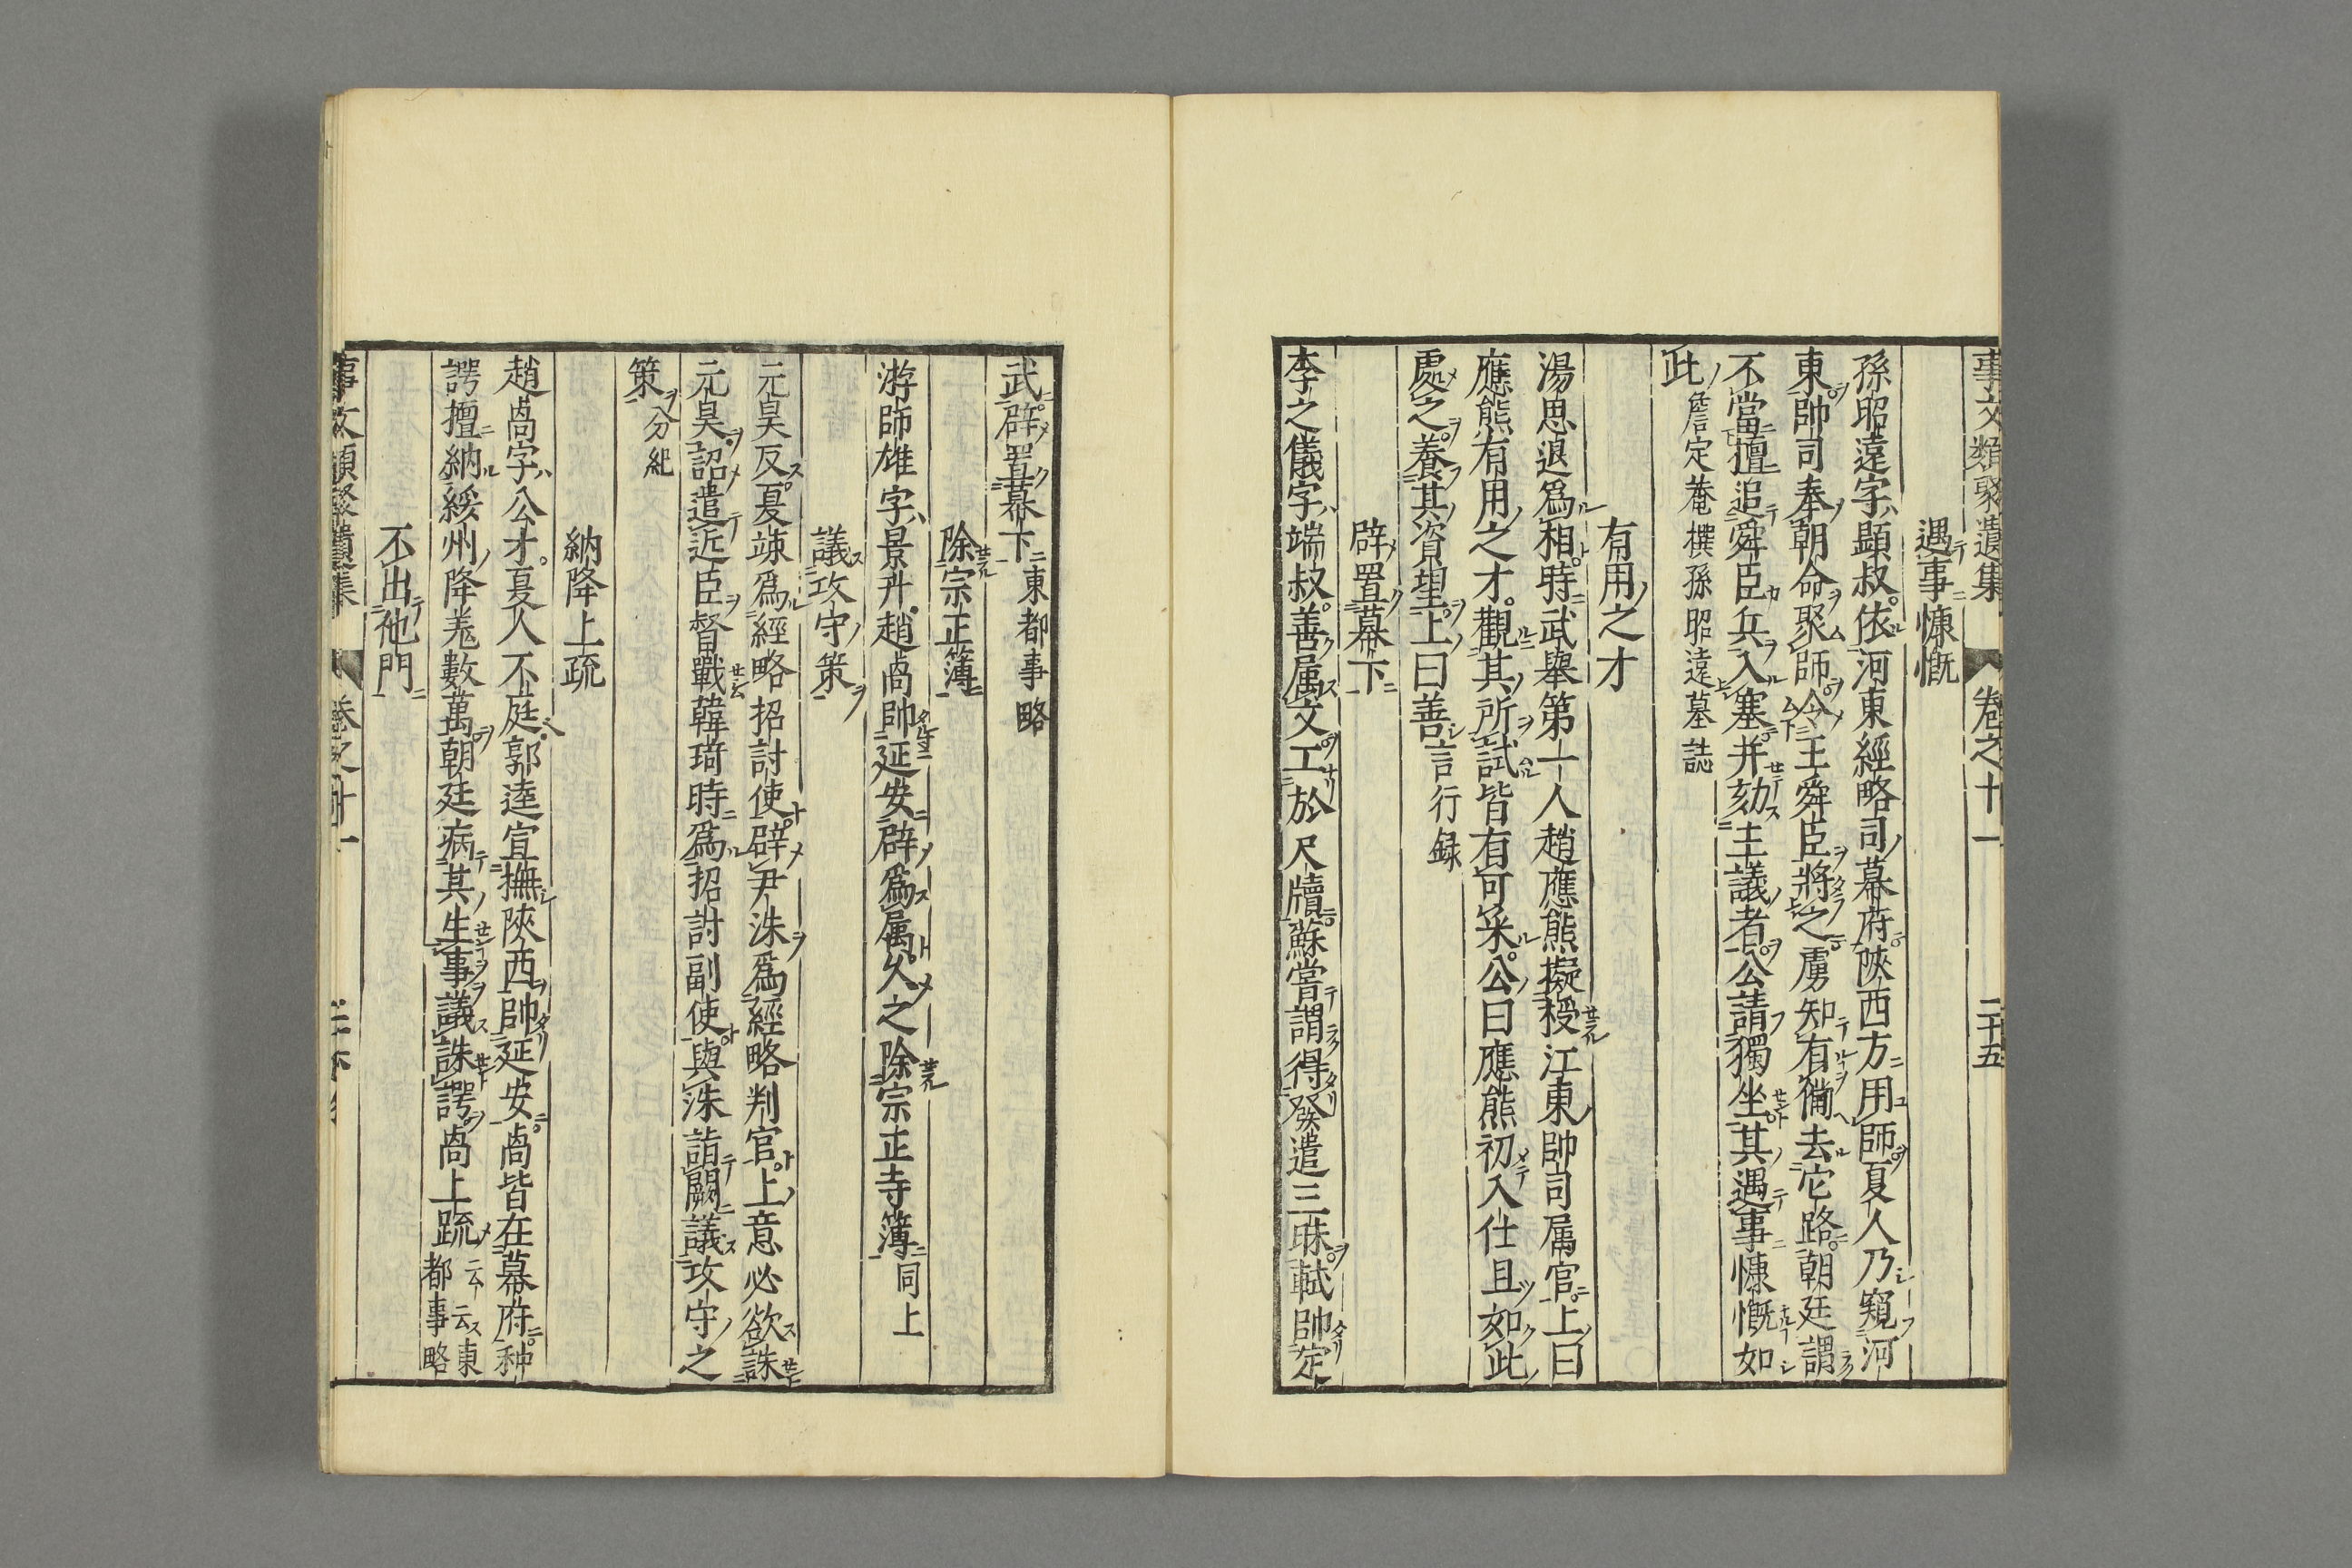 事文類聚遺集 卷之十一 二十五
遇事慷慨
孫昭遠字顯叔依河東經略司幕府陜西方用師夏人乃窺河
東帥司奉朝命聚師令王舜臣將之虜知有備去它路朝廷謂
不當擅追舜臣兵入塞并劾主議者公請獨坐其遇事慷慨如
此 詹定菴撰孫昭遠墓誌
有用之才
湯思退爲相時武舉第十人趙應熊擬授江東帥司属官上曰
應熊有用之才觀其所試皆有可采公曰應熊初入仕且如此
處之養其資望上曰善 言行録
辟置幕下
李之儀字端叔善属文工於尺牘蘇嘗謂得發遣三昧軾帥定
武辟置幕下 東都事略
除宗正簿
游師雄字景升趙卨帥延安辟爲属久之除宗正寺簿 同上
議攻守策
元昊反夏竦爲經略招討使辟尹洙爲經略判官上意必欲誅
元昊詔遣近臣督戰韓琦時爲招討副使與洙詣闕議攻守之
策 分紀
納降上疏
趙卨字公才夏人不庭郭逵宣撫陜西帥延安卨皆在幕府种
諤擅納綏州降羌數萬朝廷病其生事議誅諤卨上疏 云云東都事略
不出他門
事文類聚遺集 卷之十一